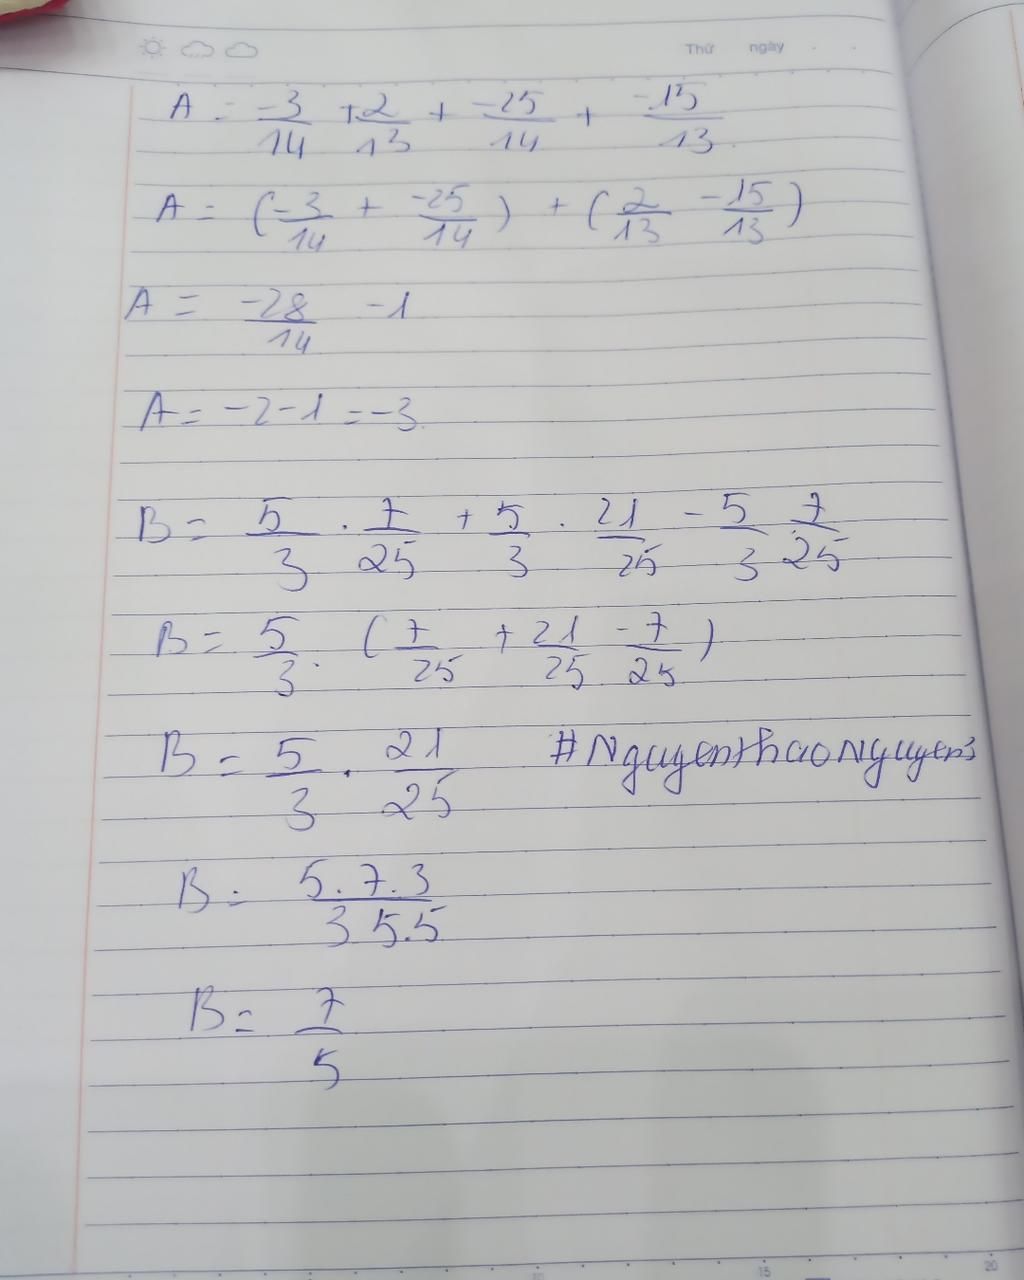 Thứ ngày
A = -3/14 + 2/13 + -25/14 + -15/13
A = (-3/14 + -25/14) + (2/13 - 15/13)
A = -28/14 - 1
A = -2 - 1 = -3
B = 5/3 . 7/25 + 5/3 . 21/25 - 5/3 . 7/25
B = 5/3 . (7/25 + 21/25 - 7/25)
B = 5/3 . 21/25 #NguyenthaoNguyen3
B = 5.7.3/3 5.5
B = 7/5
15 20